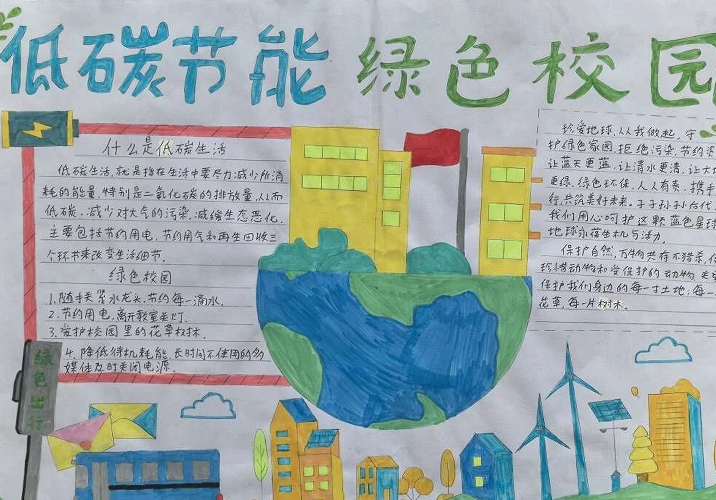 低碳节能 绿色校园
什么是低碳生活
低碳生活,就是指在生活中要尽力减少所消
耗的能量,特别是二氧化碳的排放量,从而
低碳,减少对大气的污染,减缓生态恶化.
主要包括节约用电,节约用气和再生回收三
个环节来改变生活细节.
绿色校园
1.随手关紧水龙头,节约每一滴水.
2.节约用电,离开教室关灯.
3.爱护校园里的花草树木.
4.降低待机耗能,长时间不使用的多
媒体及时关闭电源.
绿色出行
珍爱地球,人人我做起,守
护绿色家园 拒绝污染,节约
让蓝天更蓝,让清水更清,让大
更绿,绿色环保,人人有责,携手
行,共筑美好未来,子子孙孙后代,
我们用心呵护这颗蓝色星球
地球永葆生机与活力.
保护自然,万物共存不猎杀,
珍惜动物和受保护的动物
保护我们身边的每一寸土地,每一
花草,每一片树木.